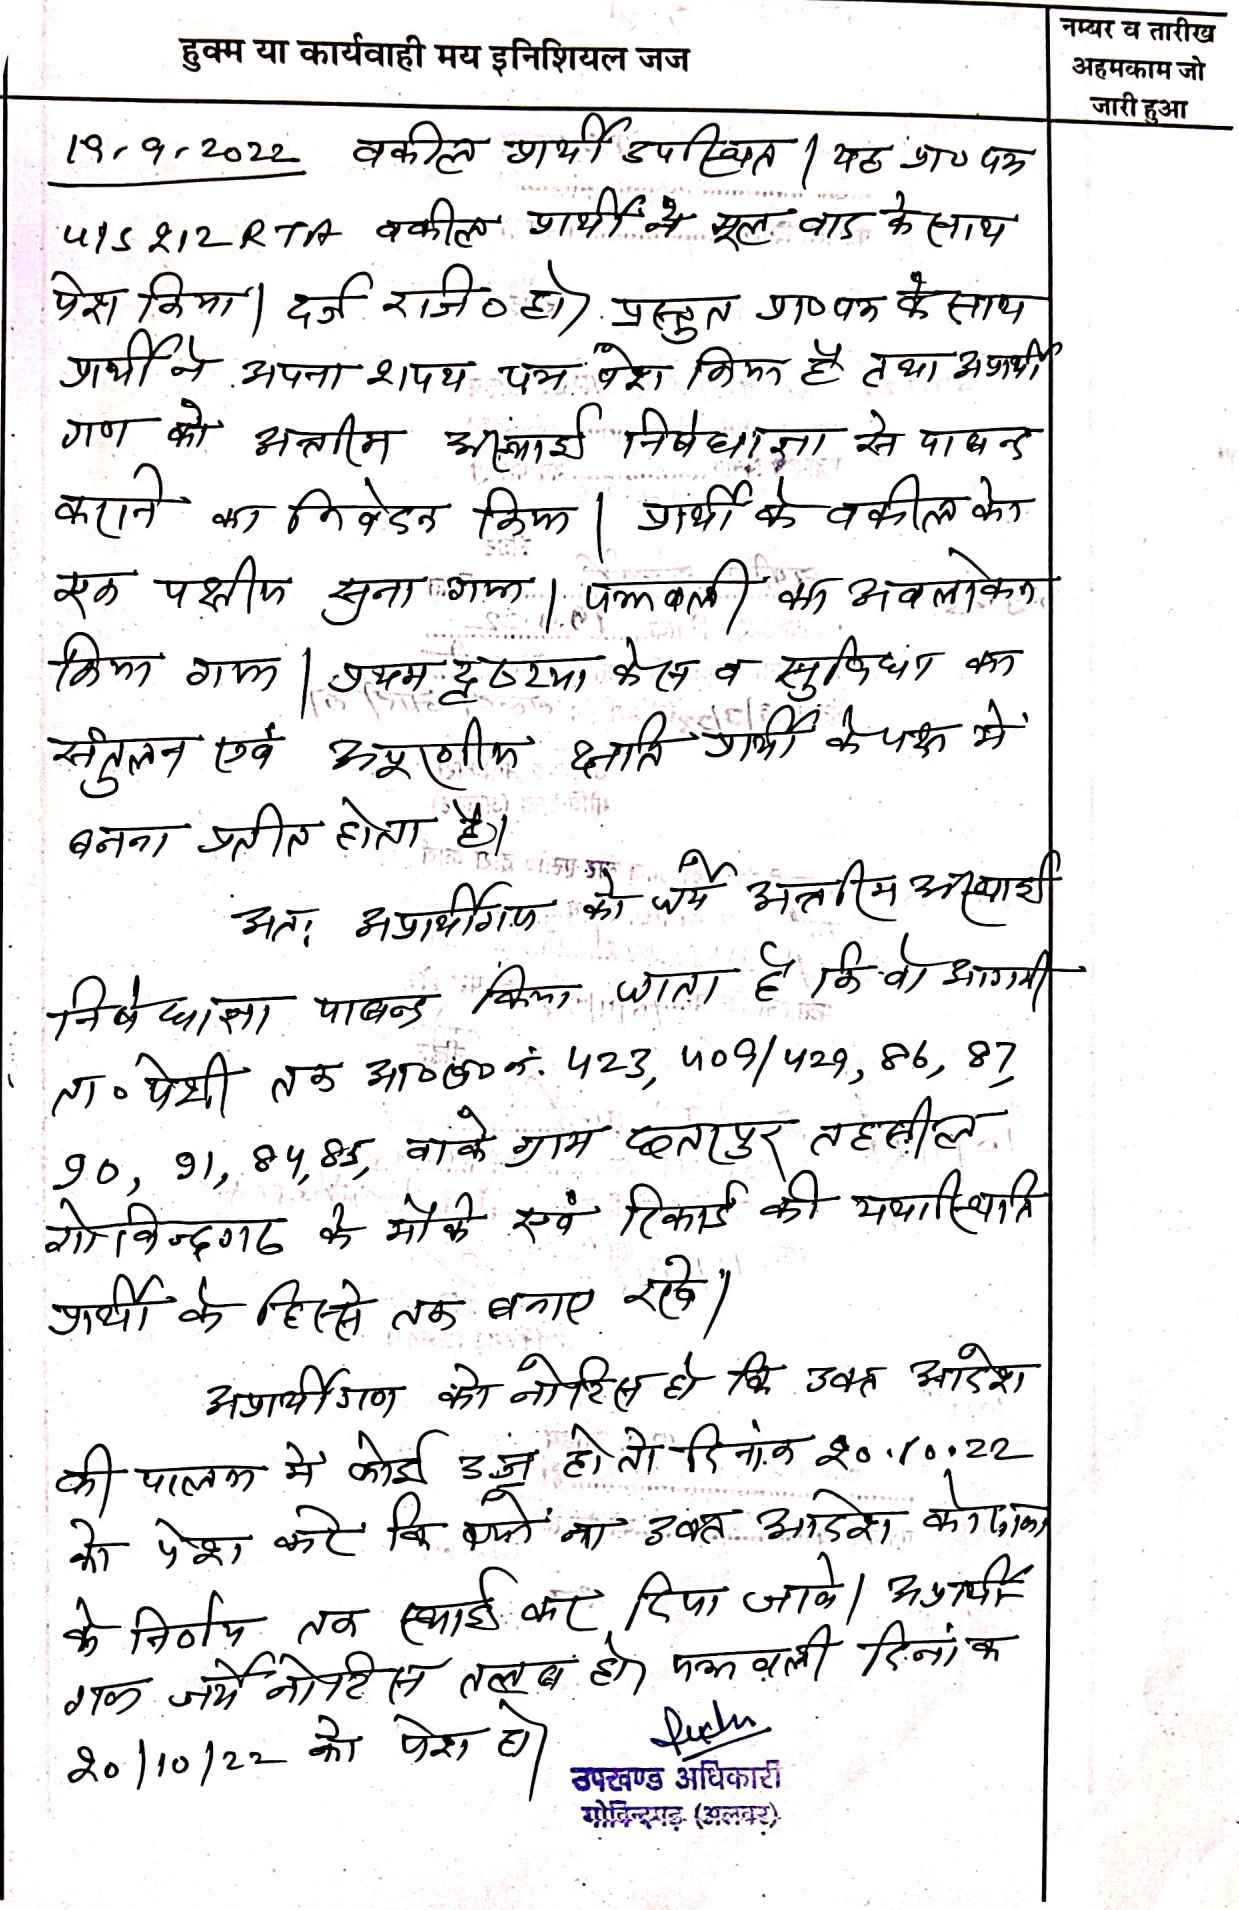 हुक्म या कार्यवाही मय इनिशियल जज
नम्बर व तारीख
अहमकाम जो
जारी हुआ
19.9.2022 वकील प्रार्थी उपस्थित। यह प्रा० पत्र
u/s 212 RTA वकील प्रार्थी ने मूल वाद के साथ
पेश किया। दर्ज रजि० हो। प्रस्तुत प्रा० पत्र के साथ
प्रार्थी ने अपना शपथ पत्र पेश किया है तथा अप्रार्थी
गण को अन्तरिम अस्थाई निषेधाज्ञा से पाबन्द
कराने का निवेदन किया। प्रार्थी के वकील को
एक पक्षीय सुना गया। पत्रावली का अवलोकन
किया गया। प्रथम दृष्टया केस व सुविधा का
संतुलन एवं अपूरणीय क्षति प्रार्थी के पक्ष में
बनना प्रतीत होता है।
अतः अप्रार्थीगण को जर्ये अन्तरिम अस्थाई
निषेधाज्ञा पाबन्द किया जाता है कि वो आगामी
ता० पेशी तक आ० ख० नं. 423, 409/429, 86, 87,
90, 91, 84, 85, वाके ग्राम छतरपुर तहसील
गोविन्दगढ के मौके एवं रिकार्ड की यथास्थिति
प्रार्थी के हिस्से तक बनाए रखे।
अप्रार्थीगण को नोटिस हो कि उक्त आदेश
की पालना में कोई उज्र हो तो दिनांक 20.10.22
को पेश करे कि क्यों ना उक्त आदेश को
के निर्णय तक स्थाई कर दिया जावे। अप्रार्थी
गण जर्ये नोटिस तलब हो। पत्रावली दिनांक
20/10/22 को पेश हो।
उपखण्ड अधिकारी
गोविन्दगढ़ (अलवर)